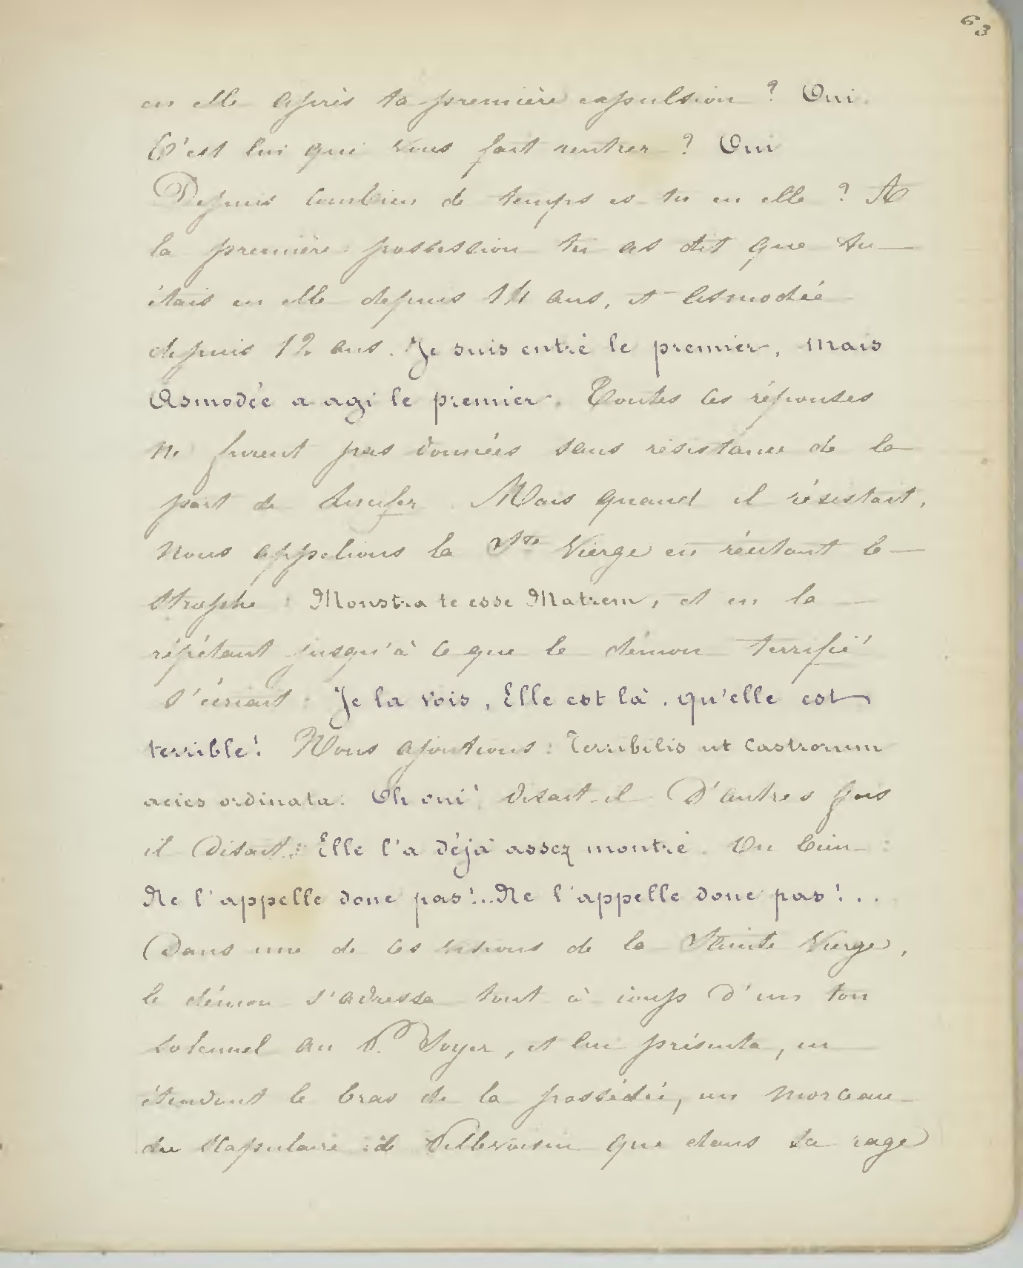 63
en elle après ta première expulsion ? Oui.
C'est lui qui vous fait rentrer ? Oui
Depuis combien de temps es-tu en elle ? A
la première possession tu as dit que tu
étais en elle depuis 14 ans, et Asmodée
depuis 12 ans. Je suis entré le premier, mais
Asmodée a agi le premier. Toutes ces réponses
ne furent pas données sans résistance de la
part de Lucifer. Mais quand il résistait,
nous appelions la Ste Vierge en récitant la
strophe : Monstra te esse Matrem, et en la
répétant jusqu'à ce que le démon terrifié
s'écriait : Je la vois, Elle est là, qu'elle est
terrible ! Nous ajoutions : Terribilis ut castrorum
acies ordinata. Oh oui ! disait-il D'autres fois
il disait : Elle l'a déjà assez montré. Ou bien :
Ne l'appelle donc pas !.. Ne l'appelle donc pas !..
(Dans une de ces visions de la Sainte Vierge,
le démon s'adressa tout à coup d'un ton
solennel au P. Soyer, et lui présenta, en
étendant le bras de la possédée, un morceau
du scapulaire de Pellevoisin que dans sa rage